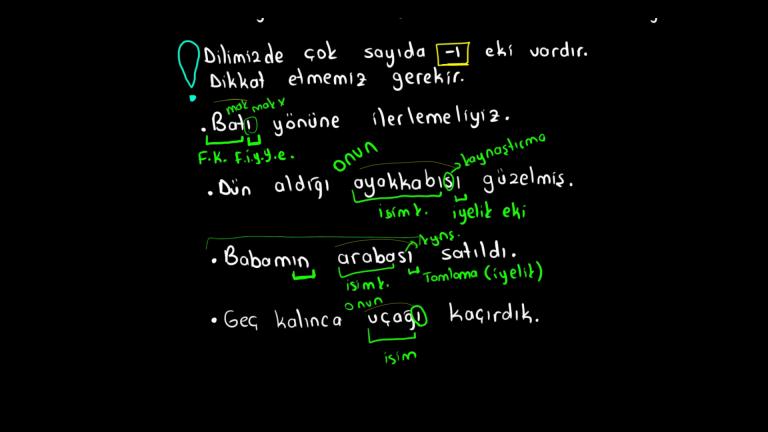 Dilimizde çok sayıda -ı eki vardır.
Dikkat etmemiz gerekir.
mak mak x
• Batı yönüne ilerlemeliyiz.
F.K. F.i.y.y.e.
onun kaynaştırma
• Dün aldığı ayakkabısı güzelmiş.
isim k. iyelik eki
kyns.
• Babamın arabası satıldı.
isim k. Tamlama (iyelik)
onun
• Geç kalınca uçağı kaçırdık.
isim